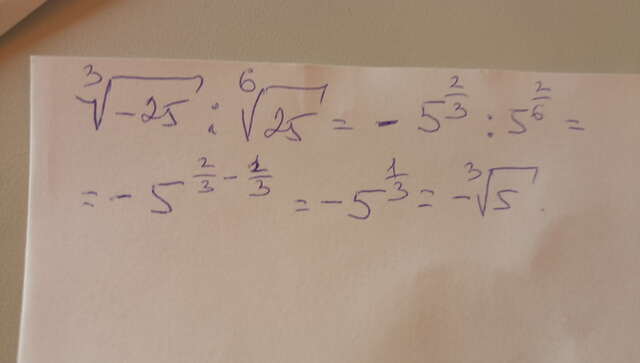 ∛-25 : ⁶√25 = - 5^(2/3) : 5^(2/6) =
= - 5^(2/3 - 1/3) = - 5^(1/3) = - ∛5.